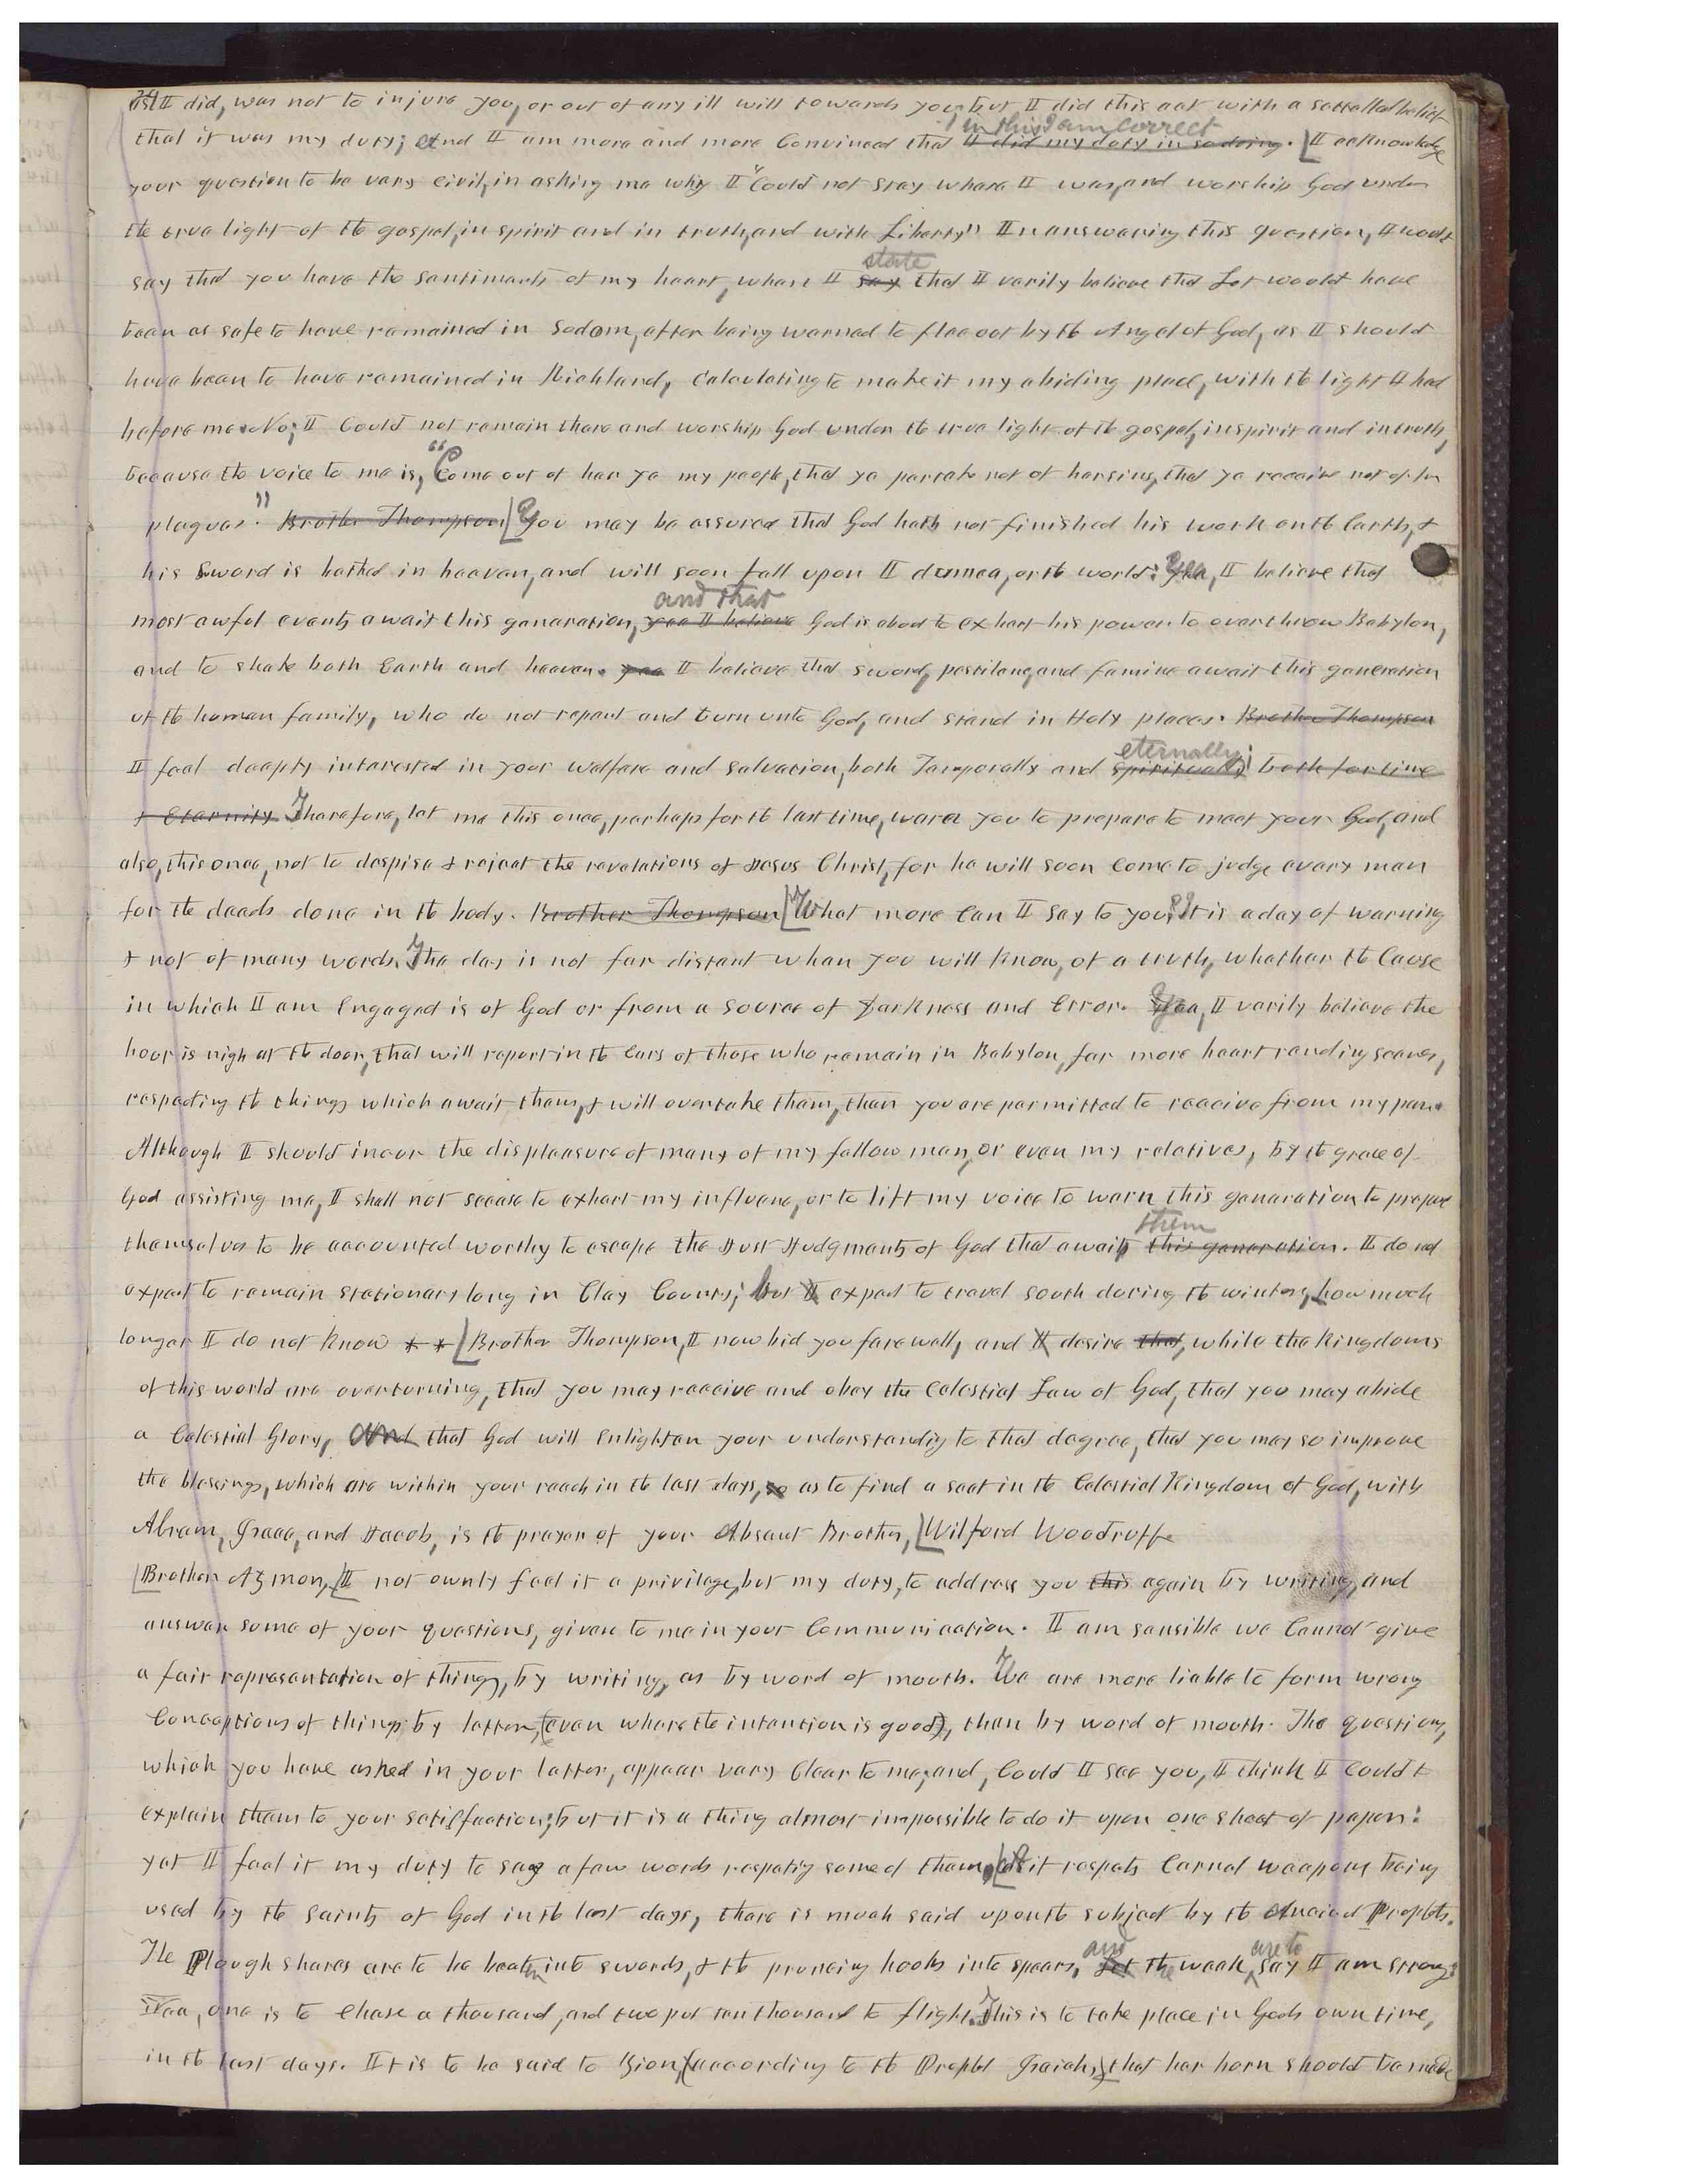 as I did, was not to injure you, or out of any ill will towards you; but I did this act with a settelled belief
that it was my duty; and I am more and more Convinced that I did my duty in so doing. in this I am correct [I acknowledge
your question to be very civil, in asking me why I "Could not stay where I was, and worship God under
the true light of the gospel, in spirit and in truth, and with Liberty" In answering this question, I would
say that you have the sentiments of my heart, when I say state that I verily believe that Lot would have
been as safe to have remained in Sodom, after being warned to flee out by the Angel of God, as I should
have been to have remained in Richland, Calculating to make it my abiding place, with the light I had
before me. No; I Could not remain there and worship God under the true light of the gospel, in spirit and in truth,
because the voice to me is, "Come out of her ye my people, that ye partake not of her sins, that ye receive not of her
plagues." Brother Thompson [You may be assured that God hath not finished his work on the Earth, &
his Sword is bathed in heaven, and will soon fall upon Idumea, or the world: Yea, I believe that
most awful events await this generation, yea I believe and that God is about to exhert his power to overthrow Babylon,
and to shake both Earth and heaven. yea I believe that sword, pestilence, and famine await this generation
of the human family, who do not repent and turn unto God, and stand in Holy places. Brother Thompson
I feel deeply interested in your welfare and salvation, both Temporally and spiritually eternally; both for time
& Eternity. Therefore, let me this once, perhaps for the last time, warn you to prepare to meet your God, and
also, this once, not to despise & reject the revelations of Jesus Christ, for he will soon Come to judge every man
for the deeds done in the body. Brother Thompson [What more Can I say to you? It is a day of warning
& not of many words. The day is not far distant when you will know, of a truth, whether the Cause
in which I am Engaged is of God or from a source of Darkness and Error. Yea, I verily believe the
hour is nigh at the door, that will report in the Ears of those who remain in Babylon, far more heart rending scenes,
respecting the things which await them, & will overtake them, than you are permitted to receive from my pen.
Although I should incur the displeasure of many of my fellow men, or even my relatives, by the grace of
God assisting me, I shall not secase to exhert my influence, or to lift my voice to warn this generation to prepare
themselves to be accounted worthy to escape the Just Judgments of God that await this generation. them I do not
expect to remain stationary long in Clay County; but I expect to travel south during the winter, how much
longer I do not know * * [Brother Thompson, I now bid you farewell, and I desire that, while the Kingdoms
of this world are overturning, that you may receive and obey the Celestial Law of God, that you may abide
a Celestial Glory, And that God will Enlighten your understandig to that degree, that you may so improve
the blessings, which are within your reach in the last days, so as to find a seat in the Celestial Kingdom of God, with
Abram, Isaac, and Jacob, is the prayer of your Absent Brother, [Wilford Woodruff
[Brother Azmon, [I not ownly feel it a privilege, but my duty, to address you this again by writing, and
answer some of your questions, given to me in your Communication. I am sensible we Cannot give
a fair representation of things, by writing, as by word of mouth. We are more liable to form wrong
Conceptions of things by letter, (even where the intention is good), than by word of mouth. The questions,
which you have asked in your letter, appear very Clear to me; and, Could I see you, I think I Could
explain them to your satisfaction; but it is a thing almost impossible to do it upon one sheet of paper:
yet I feel it my duty to say a few words respectig some of them. [As it respects Carnal weapons being
used by the Saints of God in the last days, there is much said upon the subject by the Ancient Prophets.
The Plough shares are to be beaten into swords, & the pruneing hooks into spears, Let and the weak are to say I am strong:
Yea, one is to Chase a thousand, and two put ten thousand to flight. This is to take place in Gods own time,
in the last days. It is to be said to Zion, (according to the Prophet Isaiah,) that her horn should be made